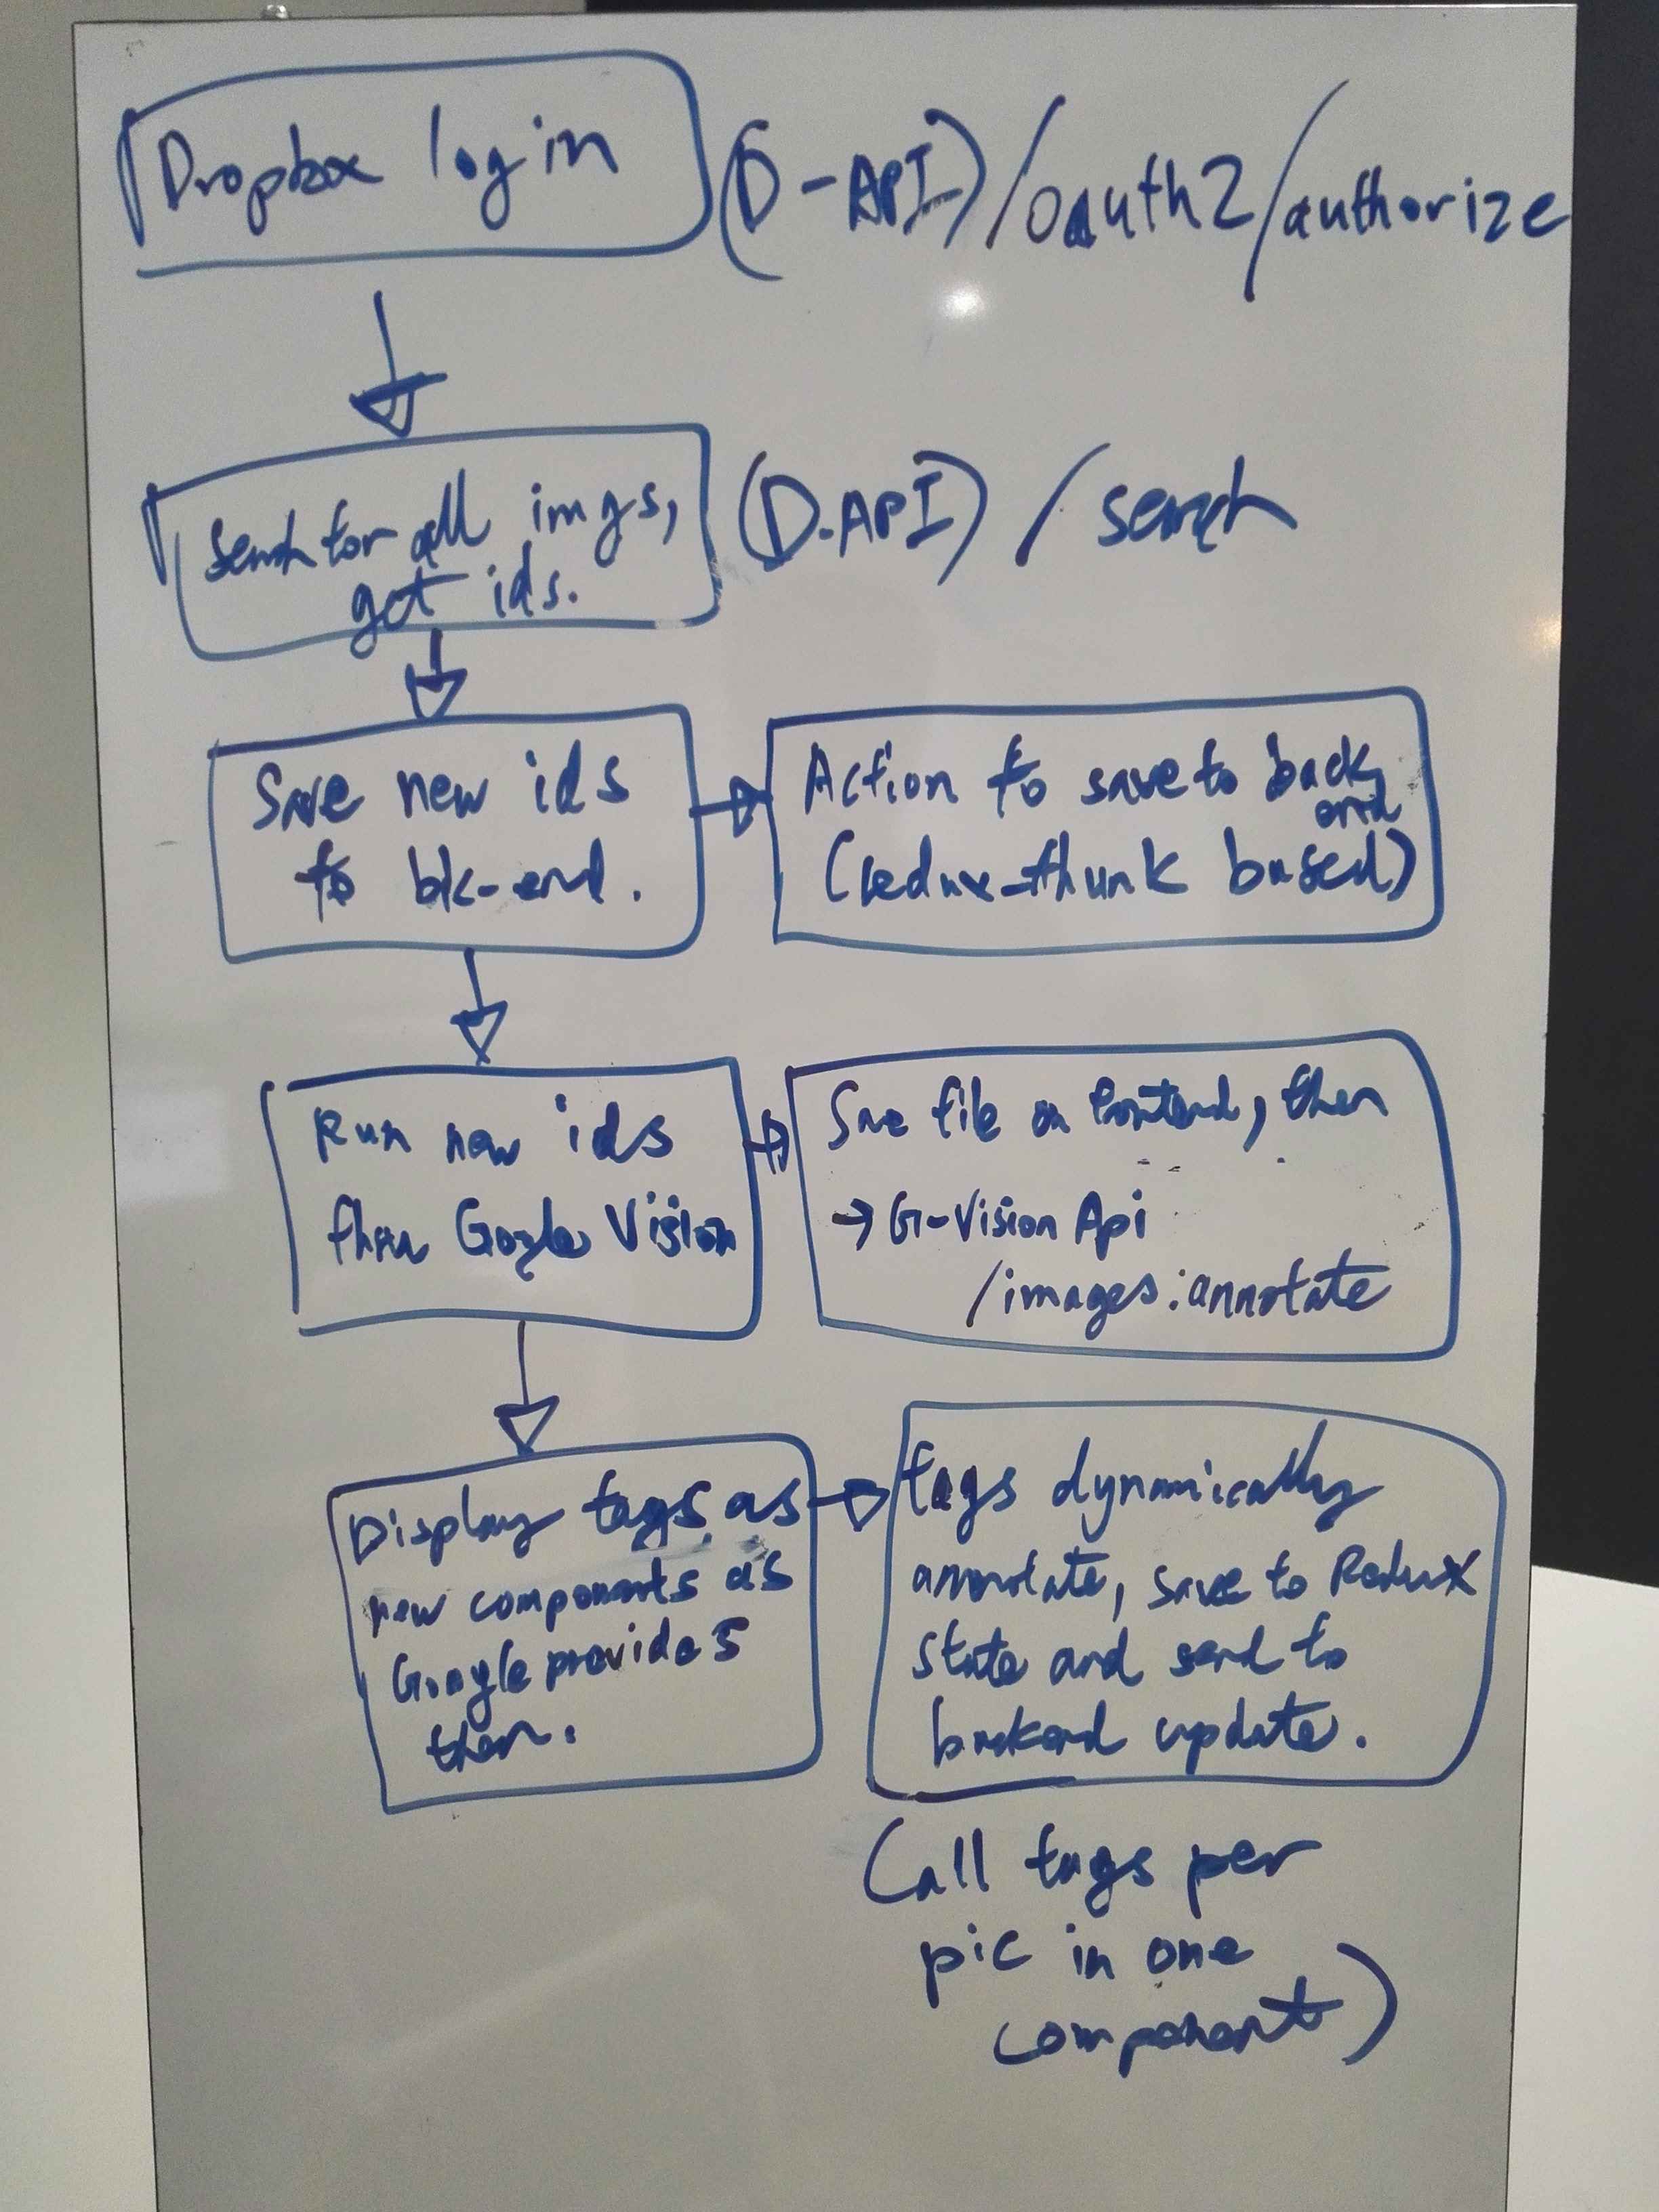 Dropbox login
(D-API)/oauth2/authorize
Search for all imgs,
get ids.
(D.API) / search
Save new ids
to bk-end.
Action to save to back
end
(redux-thunk based)
Run new ids
thru Google Vision
Save file on frontend, then
→ G-Vision Api
/images:annotate
Display tags as
new components as
Google provides
them.
tags dynamically
annotate, save to Redux
state and send to
backend update.
(all tags per
pic in one
component)